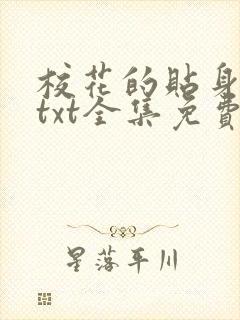 校花的貼身
txt全集免費
星落平川